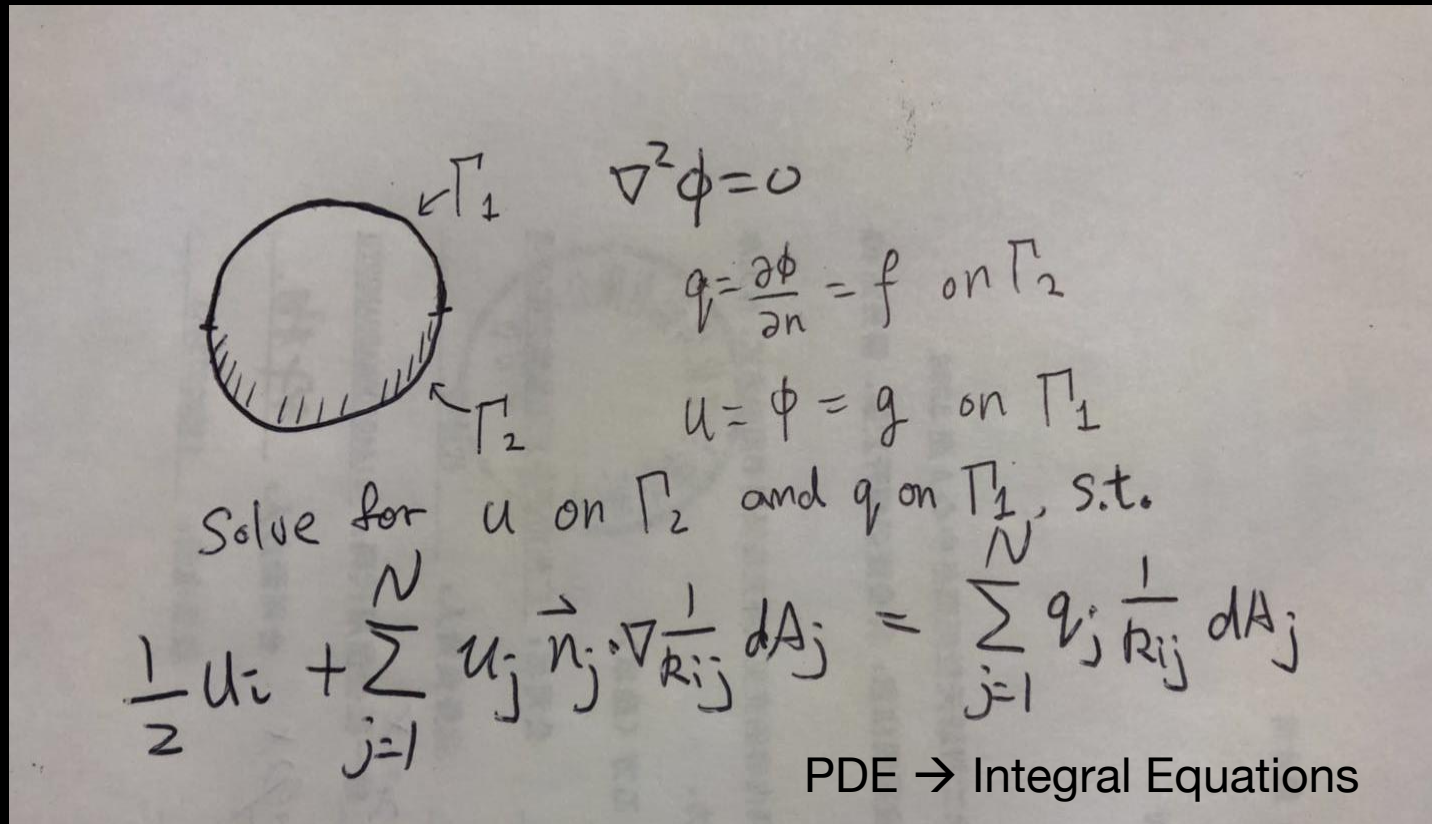 Γ₁ ∇²ϕ=0
q=∂ϕ/∂n = f on Γ₂
u= ϕ = g on Γ₁
Γ₂
Solve for u on Γ₂ and q on Γ₁, s.t.
1/2 uᵢ + ∑_{j=1}^{N} uⱼ n⃗ⱼ·∇ 1/Rᵢⱼ dAⱼ = ∑_{j=1}^{N} qⱼ 1/Rᵢⱼ dAⱼ
PDE → Integral Equations